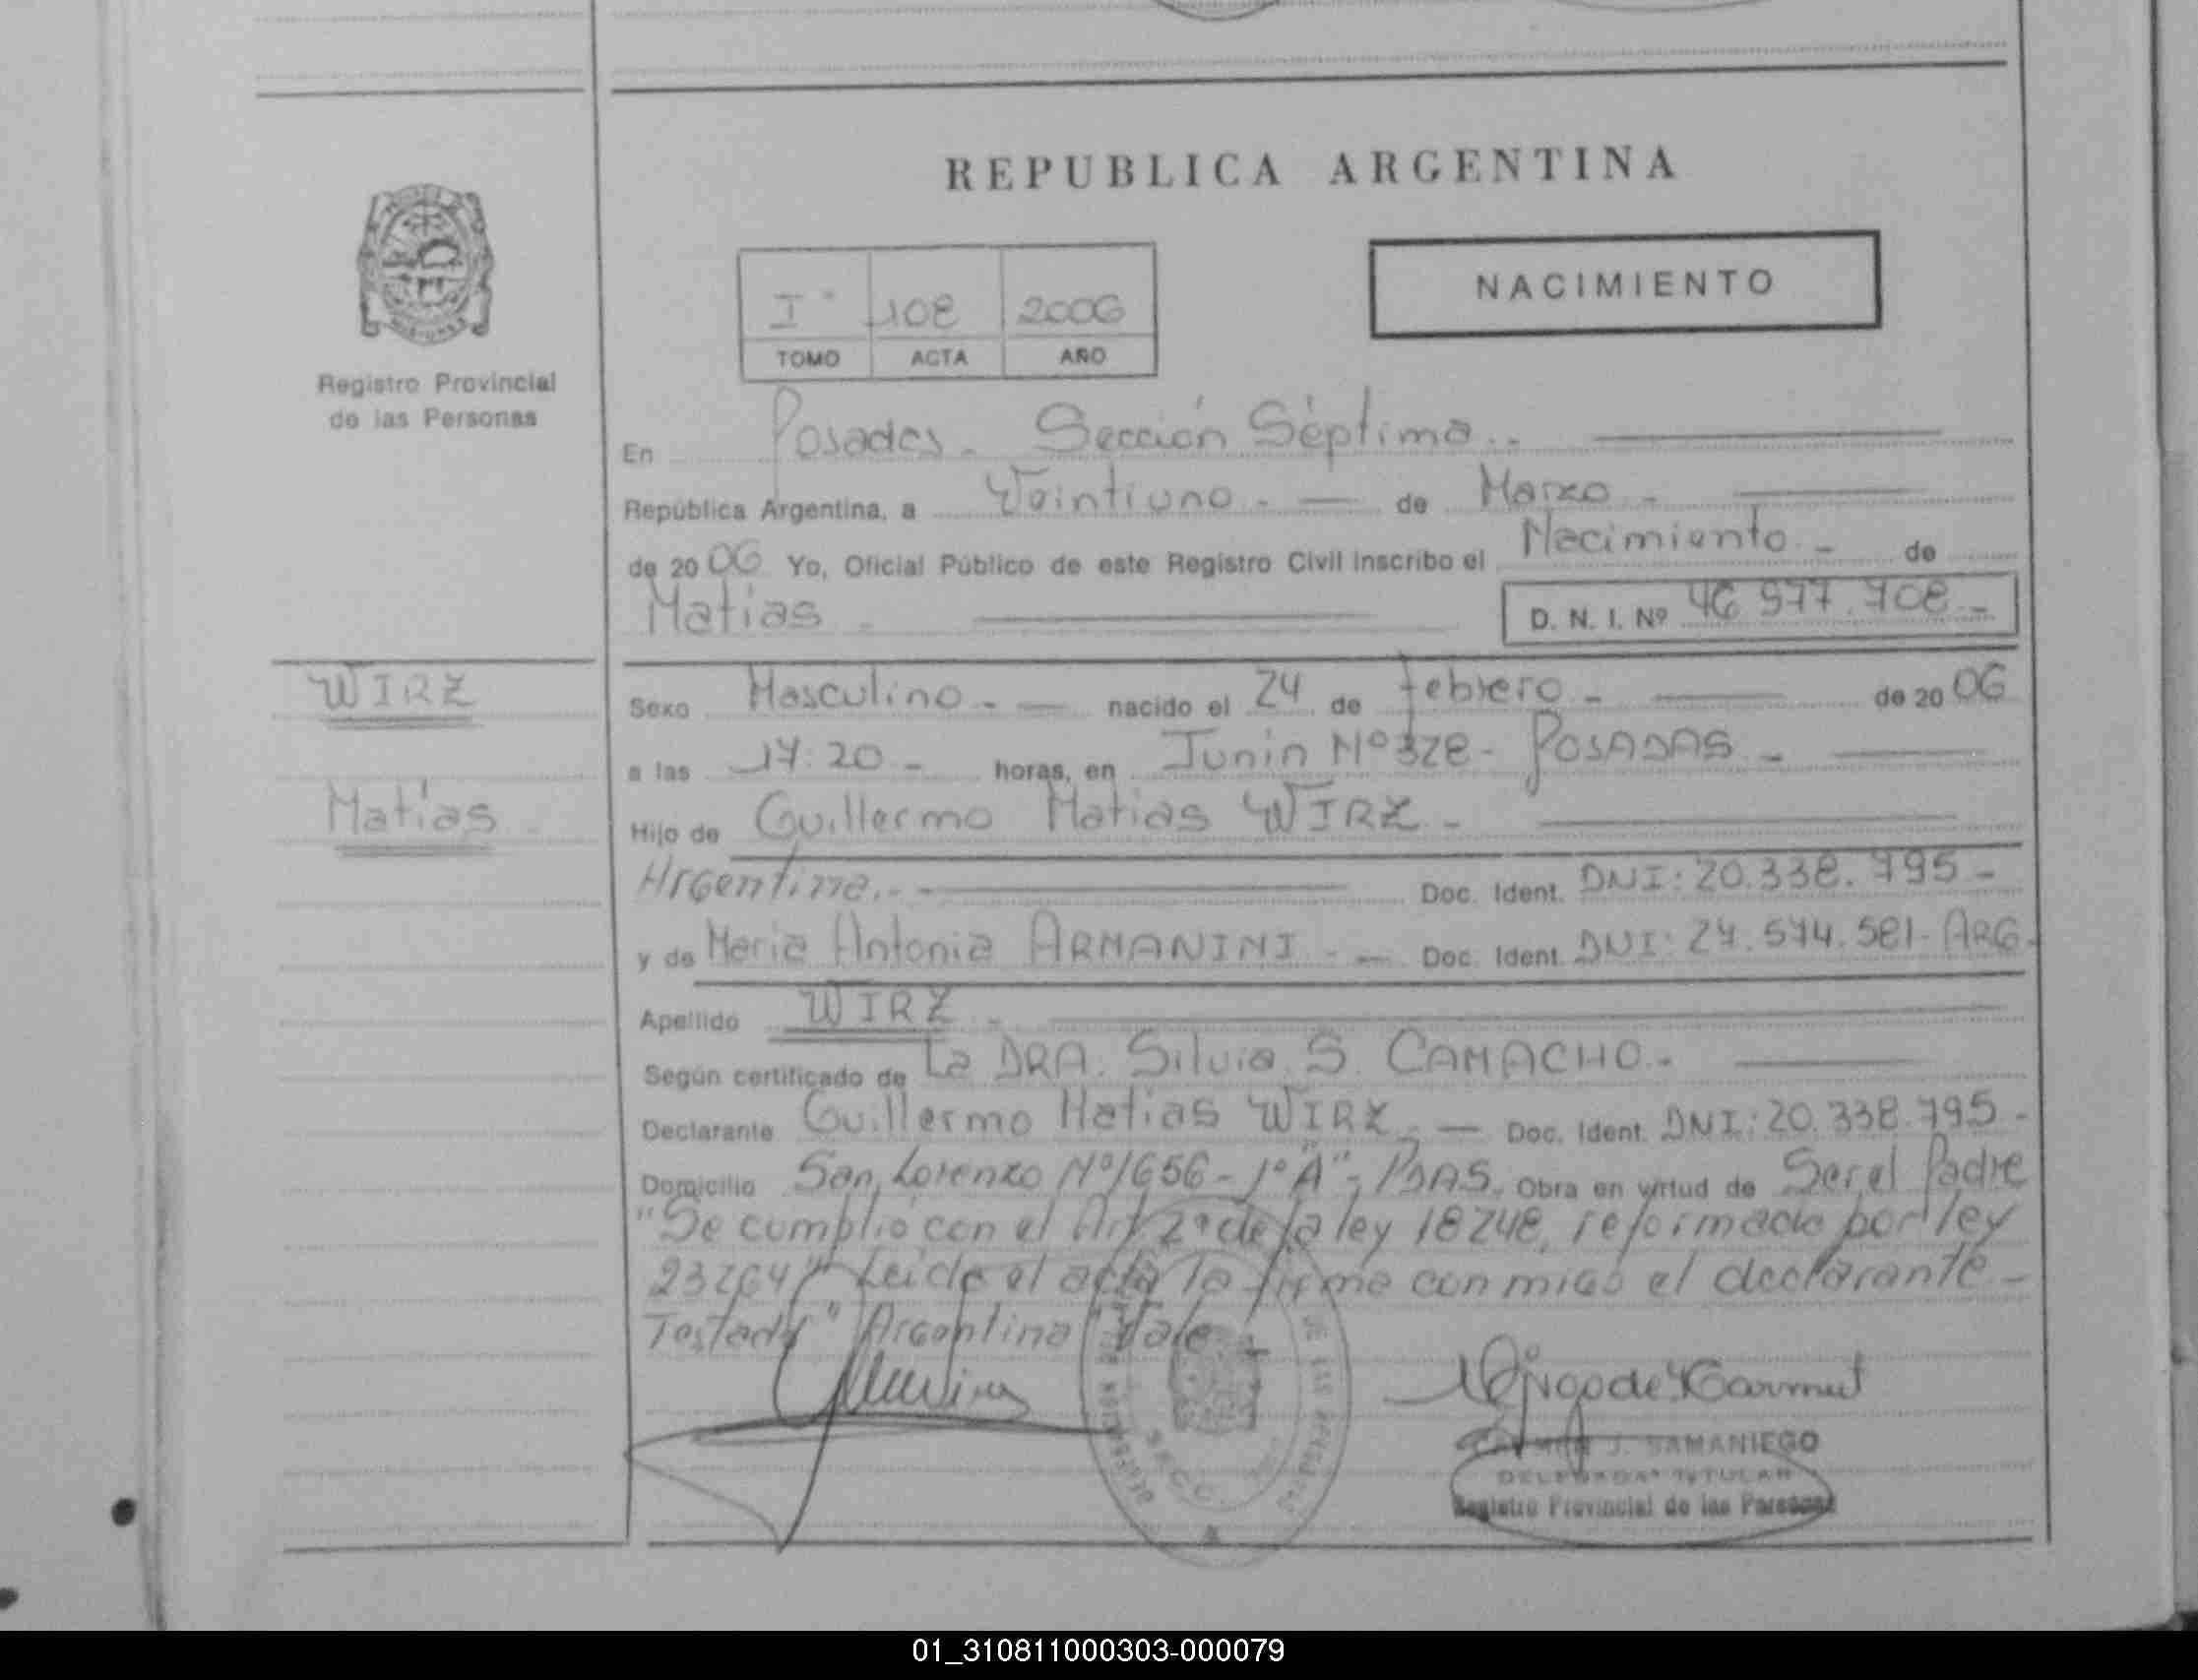 REPUBLICA ARGENTINA
NACIMIENTO
I° 108 2006
TOMO ACTA AÑO
Registro Provincial
de las Personas
En Posadas - Sección Séptima.-
República Argentina, a Veintiuno - de Marzo -
de 2006 Yo, Oficial Público de este Registro Civil inscribo el Nacimiento - de
Matias - D. N. I. Nº 46 977.708 -
WIRZ
Sexo Masculino - nacido el 24 de febrero - de 2006
a las 17:20 - horas, en Junín Nº 328 - POSADAS -
Matías -
Hijo de Guillermo Matias WIRZ -
Argentina.- Doc. Ident. DNI: 20.338.795 -
y de Maria Antonia ARMANINI - Doc. Ident. DNI: 24.574.581 - ARG.
Apellido WIRZ -
Según certificado de La DRA. Silvia S. CAMACHO.-
Declarante Guillermo Matias WIRZ - Doc. Ident. DNI: 20.338.795 -
Domicilio San Lorenzo Nº 1656 - 1º "A", PDAS. Obra en virtud de Ser el Padre
"Se cumplió con el Art 2º de la ley 18248, reformado por ley
23264" Leida el acta la firma con migo el declarante -
Testado "Argentina" Vale
J. SAMANIEGO
DELEGADA TITULAR
Registro Provincial de las Personas
01_310811000303-000079